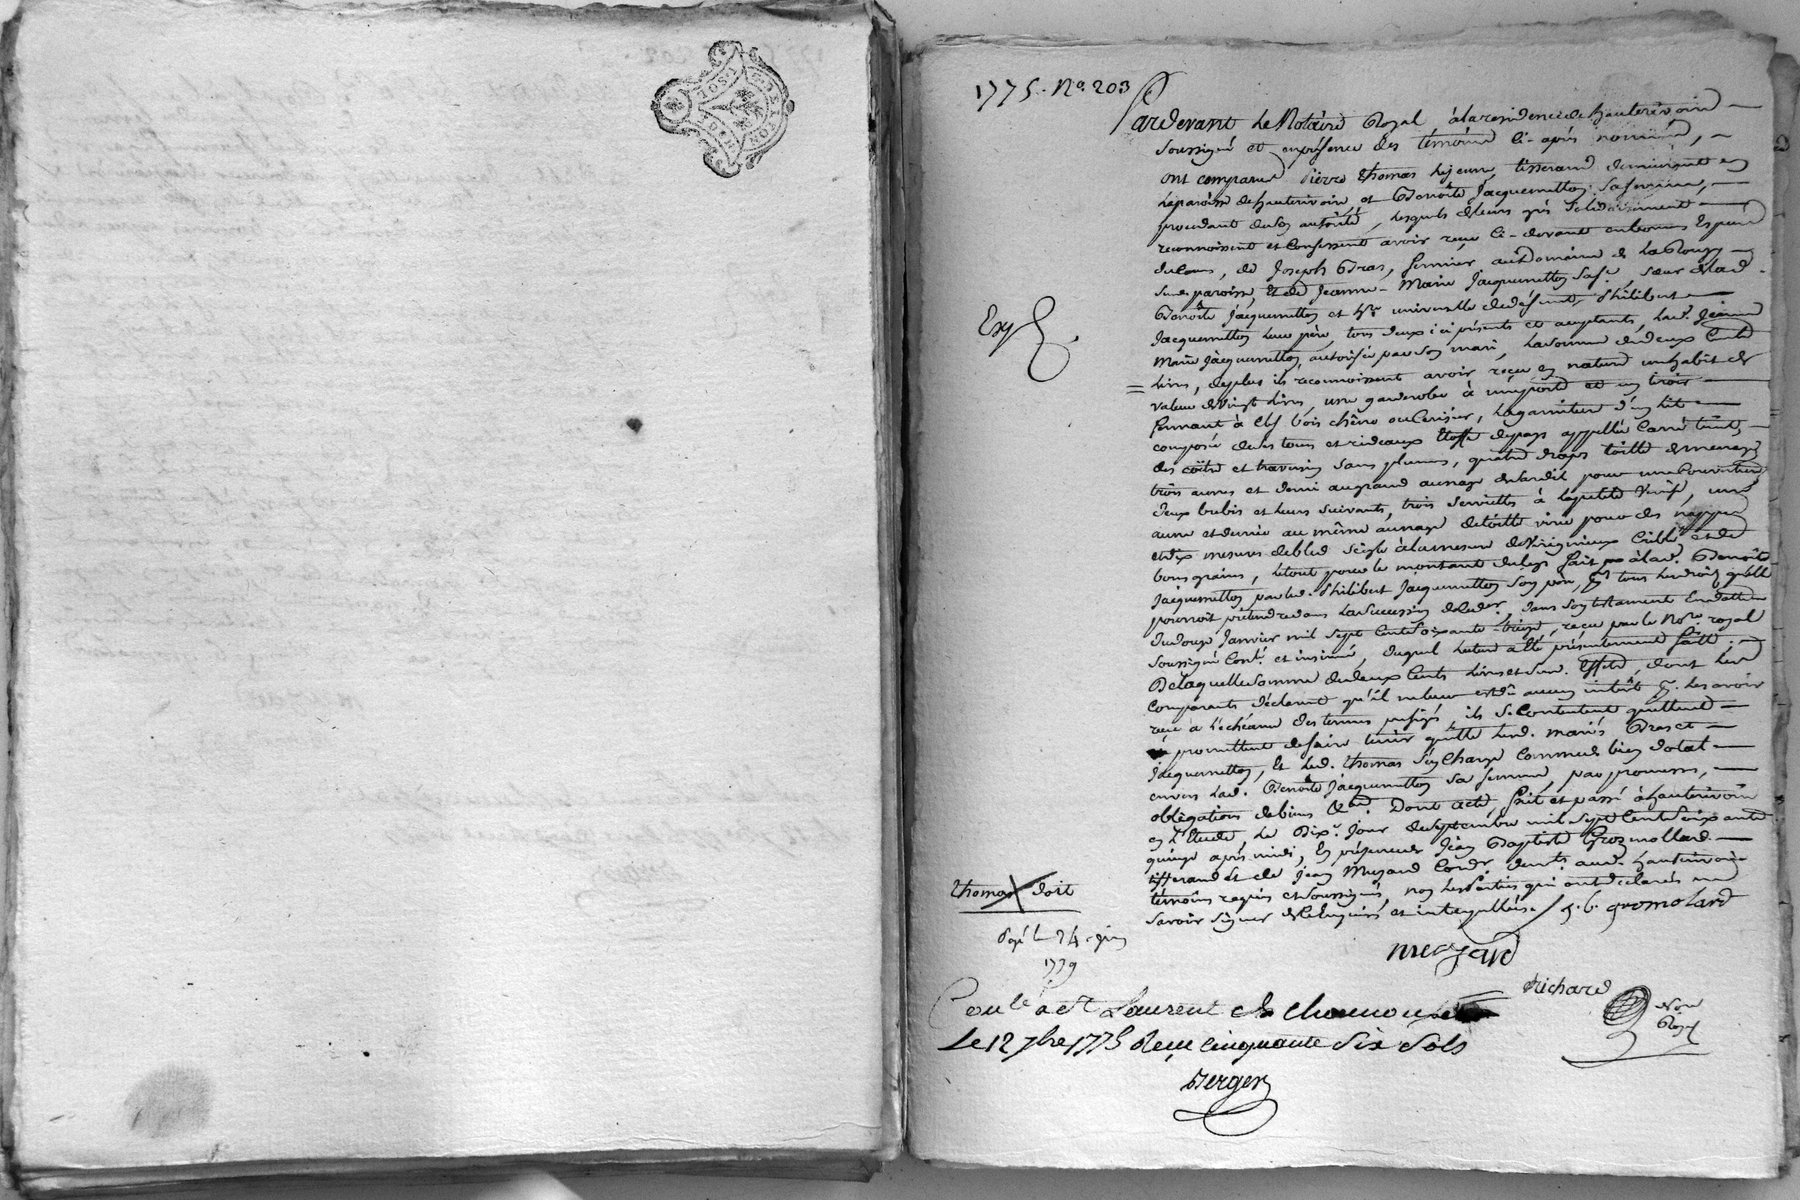 1775. No. 203
Pardevant le Notaire Royal à la residence de hauterivoire
soussigné et en présence des témoins ci-après nommés,
ont comparu Pierre thomas le jeune, tisserand demeurant en
la paroisse de hauterivoire, et Benoîte Jacquemetton sa femme,
procedant de son autorité, lesquels de leurs grés solidairement
reconnoissent et confessent avoir reçu ci-devant en bonnes espèces
du cours, de Joseph Bras, fermier au Domaine de
sud. paroisse, et de Jeanne-Marie Jacquemetton sa fe. sœur de lad.
Benoîte Jacquemetton et hre. universelle de défunt Philibert
Jacquemetton leur père, tous deux ici présents et acceptants, lad. Jeanne
Marie Jacquemetton autorisée par son mari, la somme de deux Cents
livres, de plus ils reconnoissent avoir reçu en nature un habit de
valeur de vingt livres, une garderobe à une porte et un tiroir
fermant à clef bois chêne ou cerisier, la garniture d'un lit
composée de ses tours et rideaux étoffe de pays appellée
des coître et traversin sans plumes, quatre draps toille de menage
trois aunes et demi au grand aunage pour une couverture,
deux brebis et leurs suivants, trois serviettes à la petite Venise, une
aune et demie au même aunage de toille pour des nappes
et dix mesures de bled seigle à la mesure de criblé et de
bons grains, le tout pour le montant du legs fait à lad. Benoîte
Jacquemetton par led. Philibert Jacquemetton son père, pr. tous les droits qu'elle
pourroit prétendre dans la succession dans son testament en datte
du douze Janvier mil sept cent soixante-treize, reçu par le Nore. royal
soussigné Conté. et insinué, duquel lecture a été présentement faitte,
De laquelle somme de deux cents livres et sud. effets, dont les
comparants déclarent qu'il ne leur est dû aucun intérêt pr. les avoir
reçu à l'echéance des termes prefigés, ils se contentent quittent
promettent de faire tenir quitte lesd. mariés Bras et
Jacquemetton, et led. thomas s'en charge comme de bien dotal
envers lad. Benoîte Jacquemetton sa femme, par promesses,
obligations de biens &a. Dont acte, fait et passé à hauterivoire
en l'Etude le Dixe. jour de septembre mil sept cent soixante
quinze après midi, en présence de Jean Baptiste Grosmollard
tisserand et de Jean Muzard Cordr. demts. aud. hauterivoire
témoins requis et soussignés, non les Parties qui ont déclarés ne
savoir signer de ce enquis et interpellés. / j. b. gromolard
Exp
muzard
Richard
Nore
Royal
thomas doit
Payé le 24 juin
1779
Conlé a st Laurent de chamousset
Le 12 7bre 1775 Reçu cinquante six sols
Berger